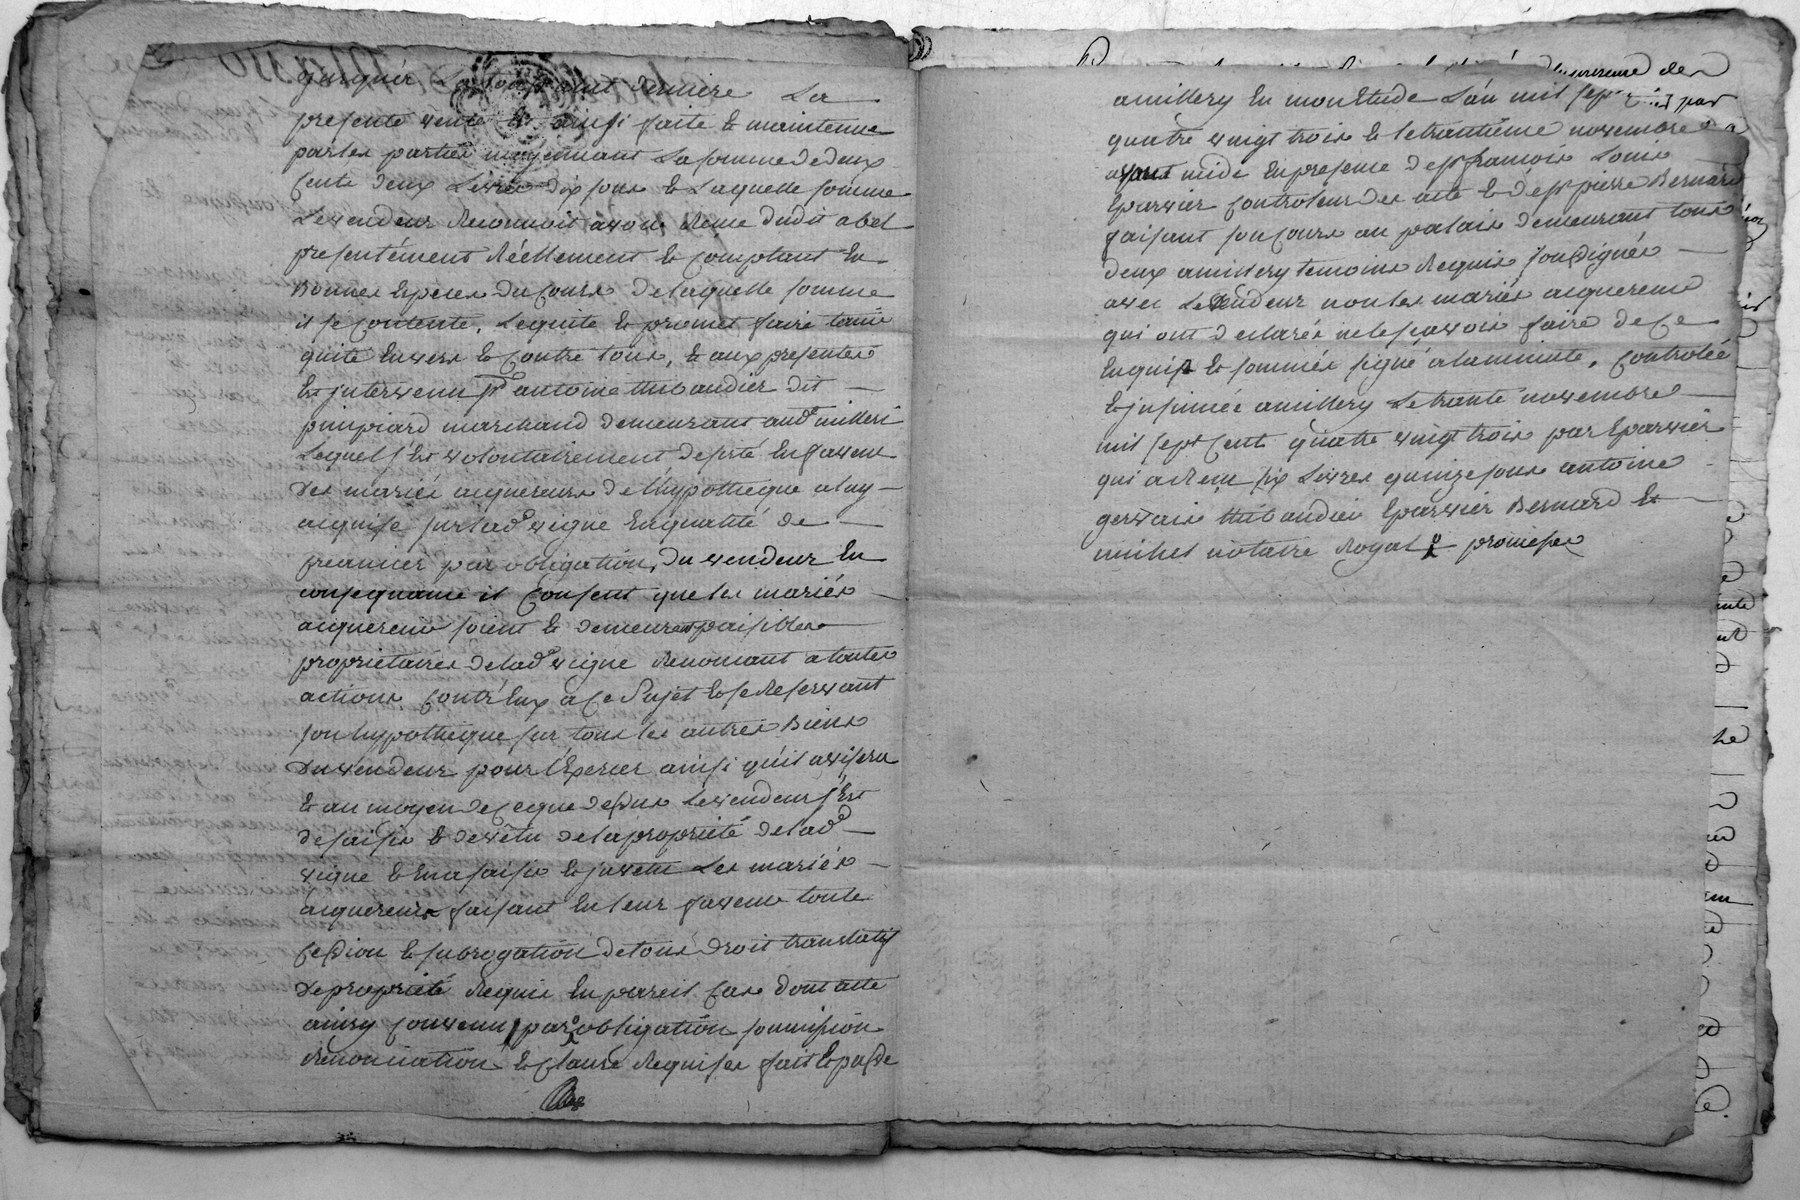 jusques La toussaint derniere La
presente vente Est ainsi faite & maintenue
par les parties moyennant La somme de deux
Cents deux Livres dix sous & Laquelle somme
Le vendeur Reconnoit avoir Reçue dudit abel
présentément Réellement & Comptant En
Bonnes Especes du Cours de laquelle somme
il se Contente, Lequite & promet faire tenir
quité Envers & Contre tous, & aux presentes
Est intervenu sr antoine thibaudier dit
pimpiard marchand demeurant aud. milleri
Lequel s'Est volontairement desisté En faveur
des mariés acquereurs de l'hypotheque a luy
acquise sur lad.e vigne En qualité de
Creancier par obligation, du vendeur En
Consequance il Consent que les mariés
acquereurs soient & demeurent paisibles
propriétaires de lad.e vigne Renoncant a toutes
actions Contr'Eux a Ce Sujet & se Reservant
son hypotheque sur tous les autres Biens
du vendeur pour l'Exercer ainsi qu'il avisera
& au moyen de Ce que dessus Le vendeur s'Est
desaisis & devêtu de la propriété de lad.e
vigne & En a saisis & invetu Les mariés
acquereurs faisant En leur faveur toute
Cession & subrogation de tous droit translatif
de propriété Requis En pareil Cas dont acte
ainsy Convenu par obligation soumission
Renonciation & Clause Requises fait & passé
amillery En mon Etude L'an mil sept
quatre vingt trois & le trantième novembre
avant midi En presence de sr francois Louis
Eparvier Controleur des acte & de sr pierre Bernard
faisant son Cours au palais demeurant tous
deux amillery temoins Requis soussignés
avec Le vendeur non les mariés acquereurs
qui ont declarés ne le savoir faire de Ce
Enquis & sommés signé a la minute, Controlée
& insinuée amillery Le trante novembre
mil sept Cent quatre vingt trois par Eparvier
qui a Reçu six Livres quinze sous antoine
gervais thibaudier Eparvier Bernard &
michel notaire Royal